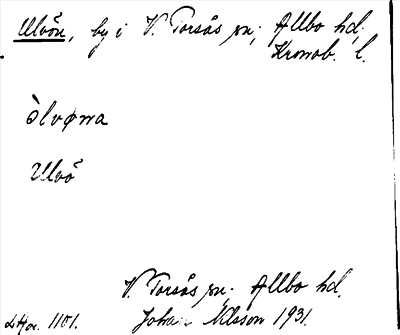 Ulvön, by i V. Torsås sn; Allbo hd,
Kronob. l.
òlvøna
Ulvö
V. Torsås sn. Allbo hd.
Johan Nilsson 1931.
1101.